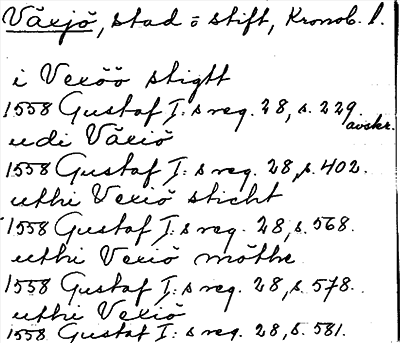 Växjö, stad o stift, Kronob. l.
i Vexöö stigtt
1558 Gustaf I:s reg. 28, s. 229 avskr.
udi Växiö
1558 Gustaf I:s reg. 28, s. 402.
uthi Vexiö sticht
1558 Gustaf I:s reg. 28, s. 568.
uthi Vexiö möthe
1558 Gustaf I:s reg. 28, s. 578.
uthi Vexiö
1558 Gustaf I:s reg. 28, s. 581.